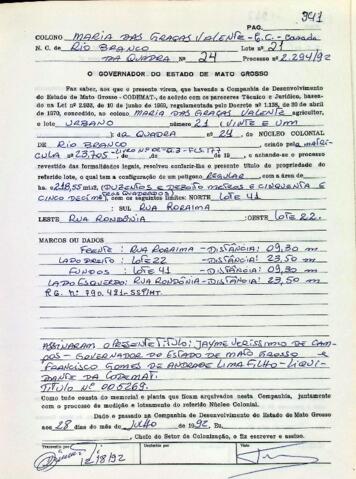 PAG.
341
COLONO MARIA DAS GRAÇAS VALENTE - E.C. - Casada
N. C. de RIO BRANCO Lote nº 21
DA QUADRA Nº 24 Processo nº 2.294/92
O GOVERNADOR DO ESTADO DE MATO GROSSO
Faz saber, aos que o presente virem, que havendo a Companhia de Desenvolvimento
do Estado de Mato Grosso - CODEMAT, de acordo com os pareceres Técnico e Jurídico, basea-
do na Lei nº 2.933, de 10 de junho de 1969, regulamentada pelo Decreto nº 1.138, de 30 de abril
de 1970, concedido, ao colono MARIA DAS GRAÇAS VALENTE, agricultor,
e lote URBANO número 21 (VINTE E UM
) da QUADRA Nº 24 do NÚCLEO COLONIAL
DE RIO BRANCO, criado pela MATRI-
CULA nº 23.705, LIVRO Nº 02-F3-FLS.177 de de 19 , e achando-se o processo
revestido das formalidades legais, resolveu conferir-lhe o presente título de propriedade
do referido lote, o qual tem a configuração de um polígono REGULAR, com a área de
ha 218,55 m2, (DUZENTOS E DEZOITO METROS E CINQUENTA E
CINCO DECÍM. QUADRADOS), com os seguintes limites: NORTE LOTE 41
: SUL RUA RORAIMA
LESTE RUA RONDÔNIA :OESTE LOTE 22.
MARCOS OU DADOS
FRENTE: RUA RORAIMA - DISTÂNCIA: 09,30 m
LADO DIREITO: LOTE 22 - DISTÂNCIA: 23,50 m
FUNDOS: LOTE 41 - DISTÂNCIA: 09,30 m
LADO ESQUERDO: RUA RONDÔNIA - DISTÂNCIA: 23,50 m
R.G. nº 790.421-SSP/MT.
ASSINARAM O PRESENTE TÍTULO: JAYME VERÍSSIMO DE CAM-
POS - GOVERNADOR DO ESTADO DE MATO GROSSO e
FRANCISCO GOMES DE ANDRADE LIMA FILHO - LIQUI-
DANTE DA CODEMAT.
TÍTULO Nº 005269.
Como tudo consta do memorial e planta que ficam arquivados nesta Companhia, juntamente
com o processo de medição e loteamento do referido Núcleo Colonial.
Dado e passado na Companhia de Desenvolvimento do Estado de Mato Grosso
aos 28 dias do mês de JULHO de 1992. Eu,
, Chefe do Setor de Colonização, o fiz escrever e assino.
Transcrito por
Visto
12/8/92